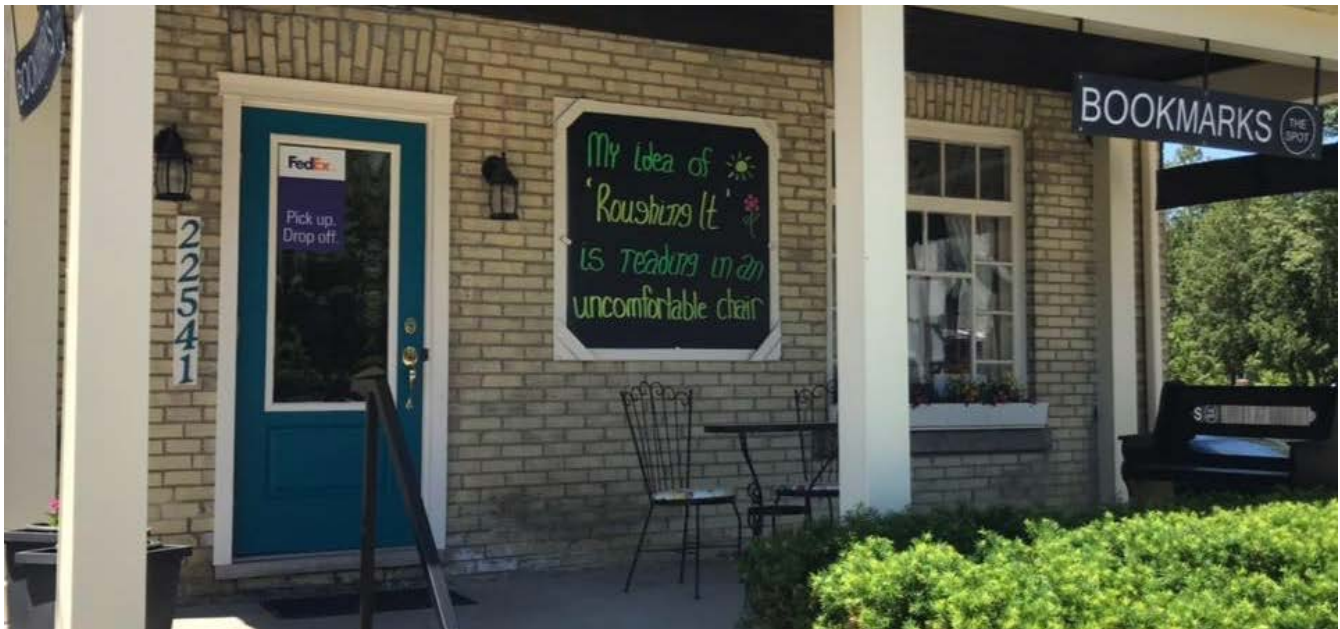 BOOKMARKS
FedEx
Pick up.
Drop off.
22541
My idea of
'Roughing It'
is reading in an
uncomfortable chair
BOOKMARKS
THE
SPOT